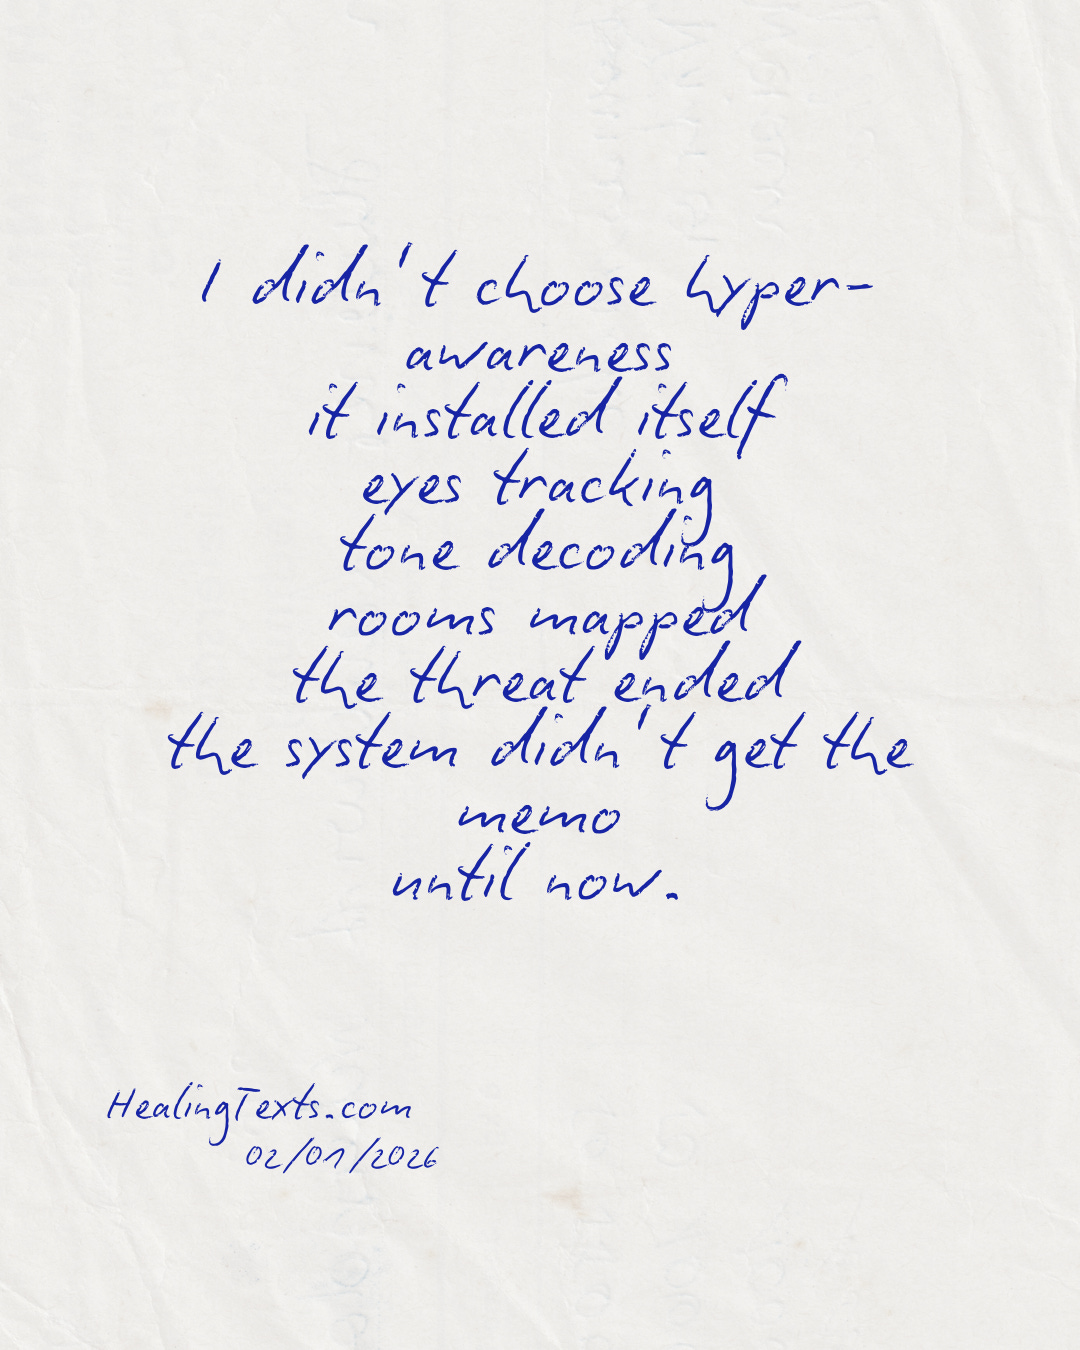 I didn't choose hyper-
awareness
it installed itself
eyes tracking
tone decoding
rooms mapped
the threat ended
the system didn't get the
memo
until now.
HealingTexts.com
02/01/2026